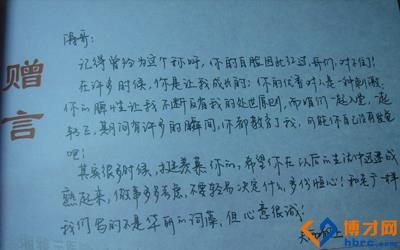 赠言
涛哥：
记得曾经为这个称呼，你的耳膜因此红过，哥们，对不住！
在许多时候，你是让我成长的：你的优秀对人是一种刺激，
你的脾性让我不断反省我的处世原则，而咱们一起入党，一起
其间有许多的瞬间，你都教育了我，可能你自己没有发觉
吧！
其实很多时候，我是羡慕你的，希望你在以后的生活中迅速成
熟起来，做事多考虑，不要轻易决定什么，多份恒心！和老广一样
我们写的不是华丽的词藻，但心意很诚！
博才网
hbrc.com